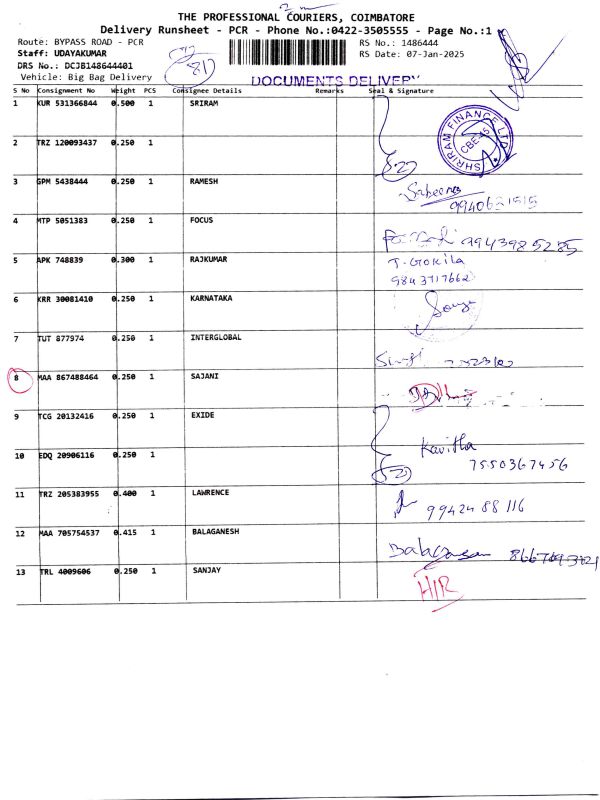 THE PROFESSIONAL COURIERS, COIMBATORE
Delivery Runsheet - PCR - Phone No.:0422-3505555 - Page No.:1
Route: BYPASS ROAD - PCR RS No.: 1486444
Staff: UDAYAKUMAR RS Date: 07-Jan-2025
DRS No.: DCJB148644401
Vehicle: Big Bag Delivery DOCUMENTS DELIVERY
S No Consignment No Weight PCS Consignee Details Remarks Seal & Signature
1 KUR 531366844 0.500 1 SRIRAM
SHRIRAM FINANCE LTD
2 TRZ 120093437 0.250 1
3 GPM 5438444 0.250 1 RAMESH
Sabeena
4 MTP 5051383 0.250 1 FOCUS
5 APK 748839 0.300 1 RAJKUMAR J. Gokila
9843717662
6 KRR 30081410 0.250 1 KARNATAKA
7 TUT 877974 0.250 1 INTERGLOBAL
8 MAA 867488464 0.250 1 SAJANI
9 TCG 20132416 0.250 1 EXIDE
10 EDQ 20906116 0.250 1 Kavitha
7550367456
11 TRZ 205383955 0.400 1 LAWRENCE
9942488116
12 MAA 705754537 0.415 1 BALAGANESH
13 TRL 4009606 0.250 1 SANJAY